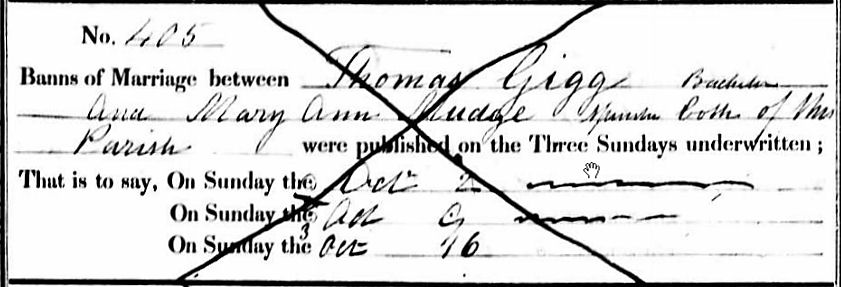 No. 405
Banns of Marriage between Thomas Gigg Bachelor
and Mary Ann Mudge Spinster both of this
Parish were published on the Three Sundays underwritten ;
That is to say, On Sunday the Oct 2
On Sunday the Oct 9
On Sunday the Oct 16